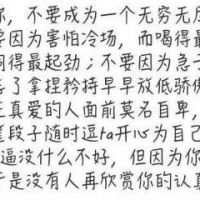 你，不要成为一个无穷无尽
要因为害怕冷场，而喝得最
闹得最起劲；不要因为急于
了拿捏矜持早早放低骄傲
正真爱的人面前莫名自卑，
段子随时逗ta开心为自己
逼没什么不好，但因为你
于是没有人再欣赏你的认真